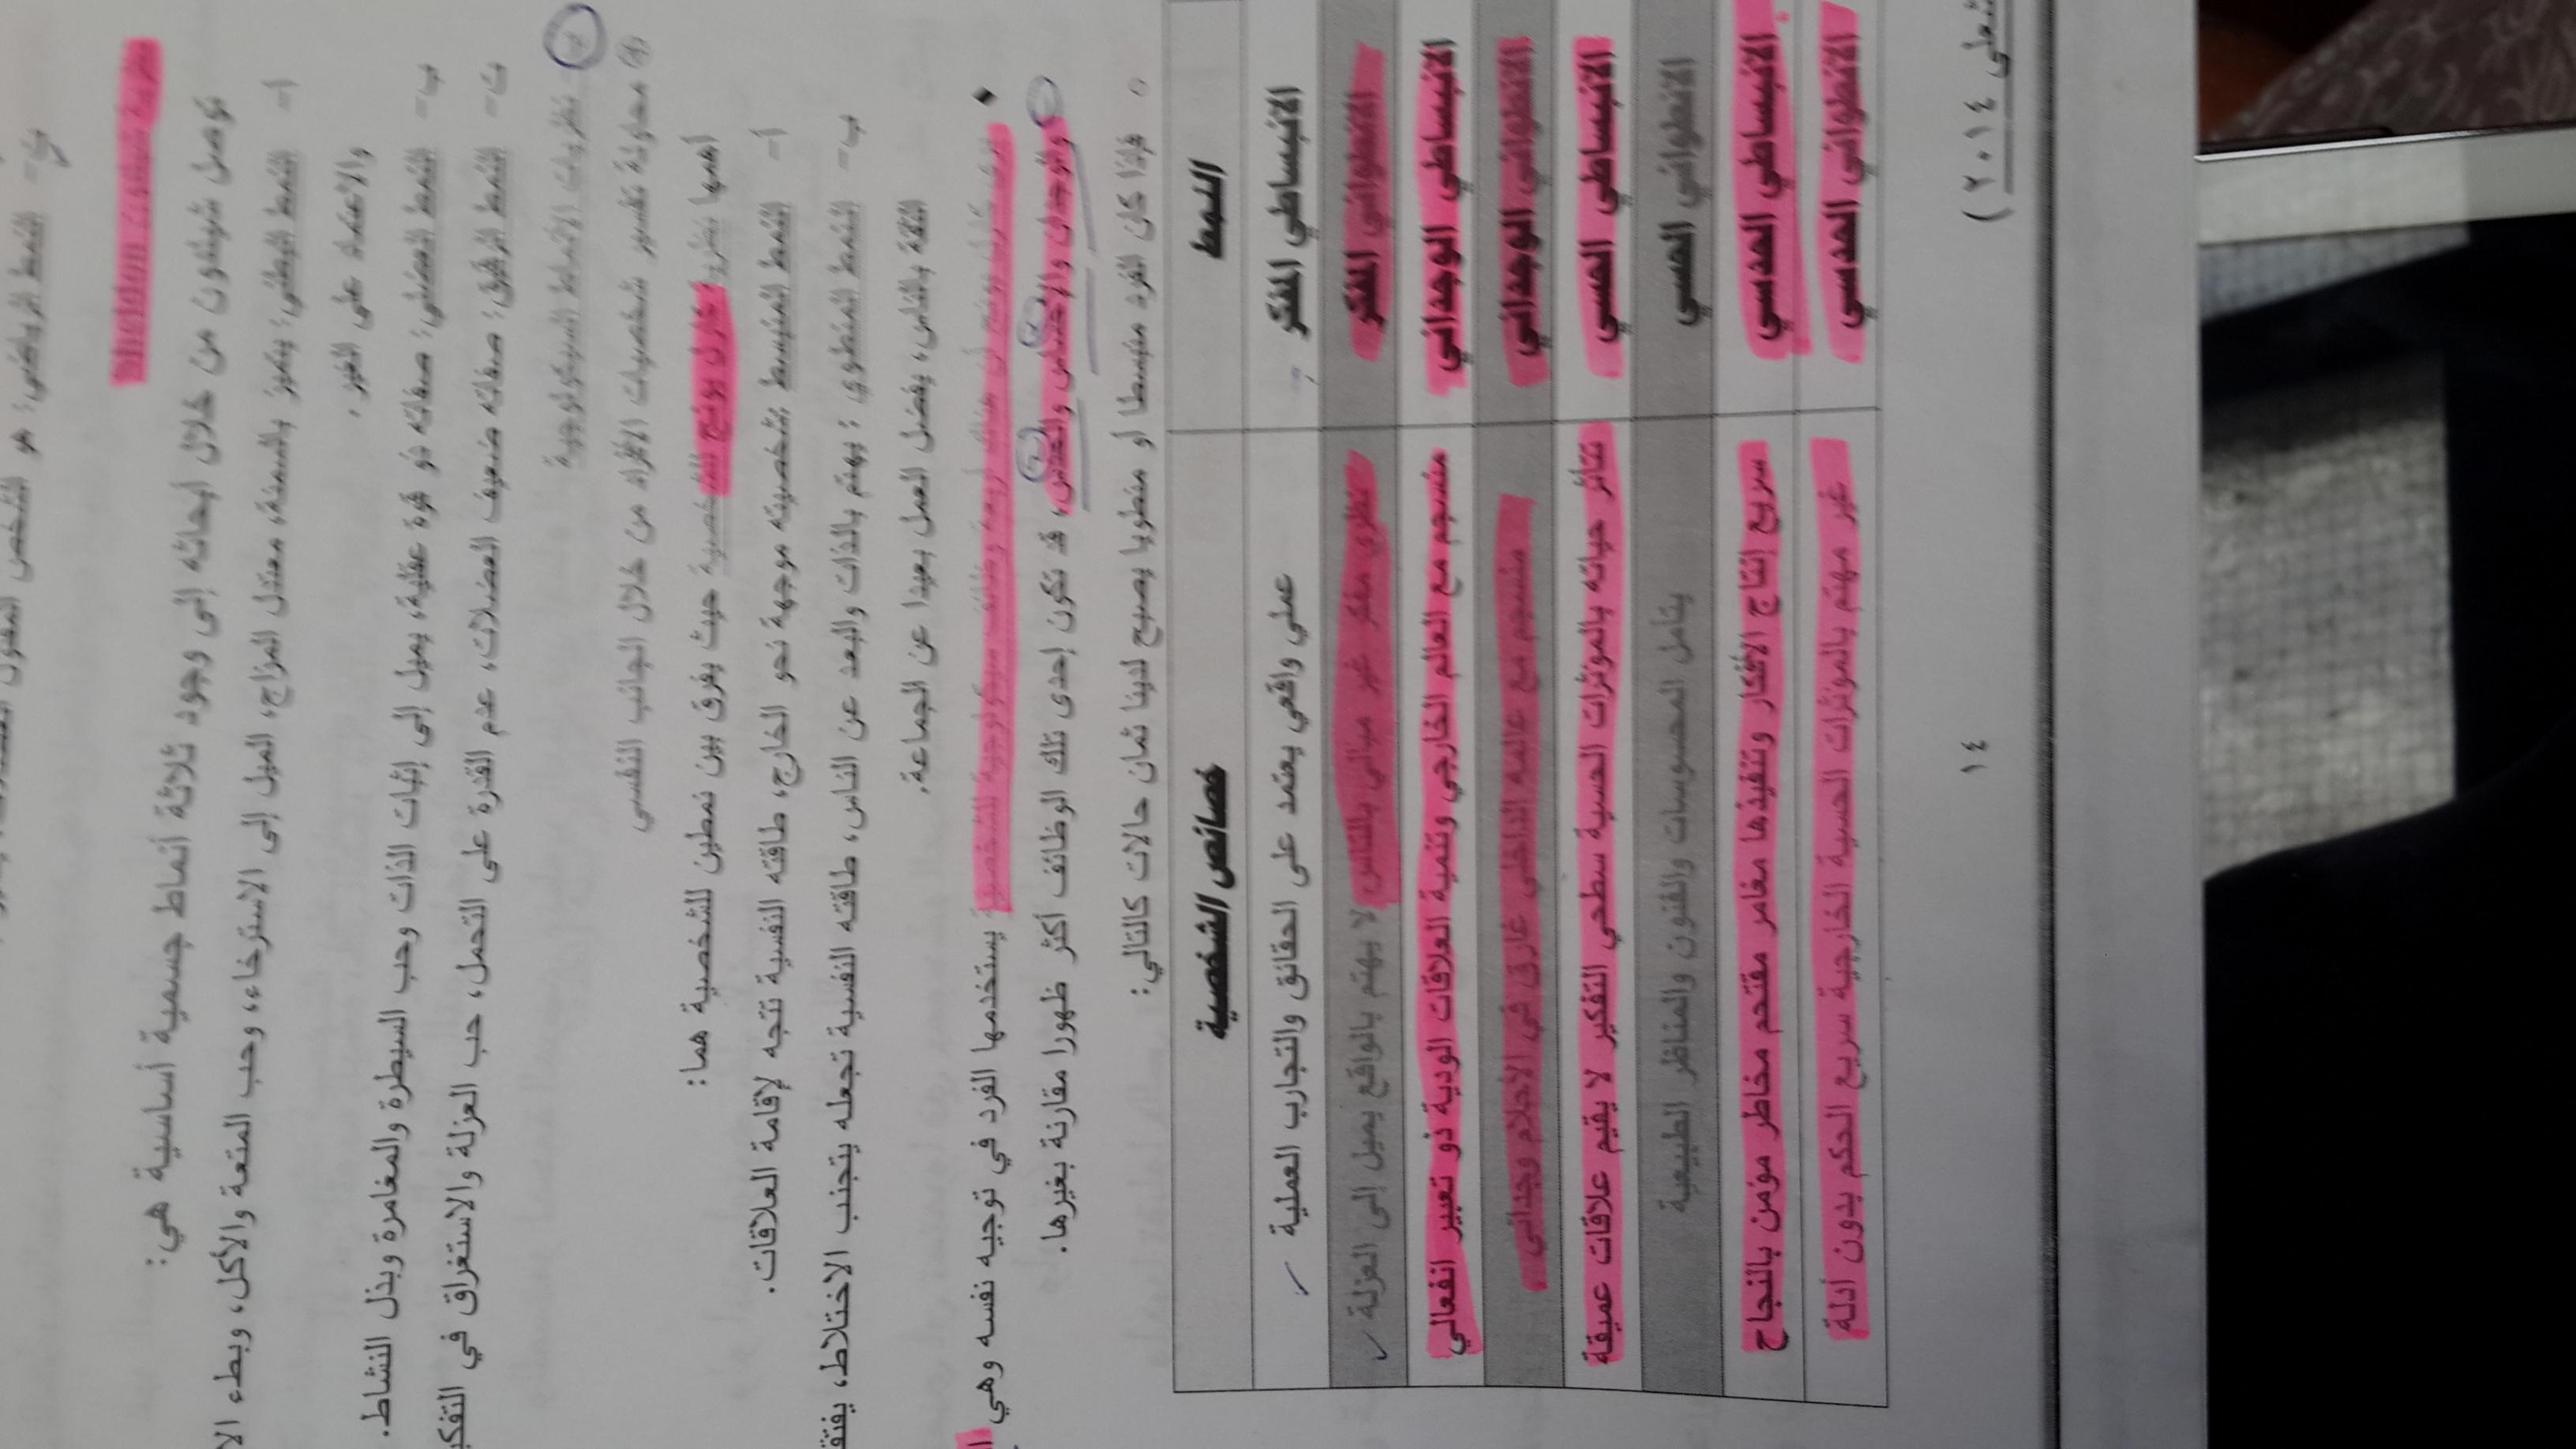 ت- النمط الرياضي: هو الشخص المفتول العضلات
نظرية شيلدون
توصل شيلدون من خلال ابحاثه إلى وجود ثلاثة أنماط جسمية أساسية هي:
أ- النمط البطني: يتميز بالسمنة، معتدل المزاج، الميل إلى الاسترخاء، وحب المتعة والأكل، وبطء
والاعتماد على الغير.
ب- النمط العضلي: صفاته ذو قوة عقلية، يميل إلى إثبات الذات وحب السيطرة والمغامرة وبذل النشاط.
ت- النمط الرقيق: صفاته ضعيف العضلات، عدم القدرة على التحمل، حب العزلة والاستغراق في
نظريات الأنماط السيكولوجية
محاولة تفسير شخصيات الأفراد من خلال الجانب النفسي
أهمها نظرية كارل يونج للشخصية حيث يفرق بين نمطين للشخصية هما:
أ- النمط المنبسط بشخصيته موجهة نحو الخارج، طاقته النفسية تتجه لإقامة العلاقات.
ب- النمط المنطوي: يهتم بالذات والبعد عن الناس، طاقته النفسية تجعله يتجنب الاختلاط، يفتقد
الثقة بالناس، يفضل العمل بعيدا عن الجماعة.
يرى كارل يونج أن هناك أربعة وظائف سيكولوجية للشخصية يستخدمها الفرد في توجيه نفسه وهي
والوجدان والإحساس والحدس، قد تكون إحدى تلك الوظائف أكثر ظهورا مقارنة بغيرها.
فإذا كان الفرد منبسطا أو منطويا يصبح لدينا ثمان حالات كالتالي:
النمط خصائص الشخصية
الانبساطي المفكر عملي واقعي يعتمد على الحقائق والتجارب العملية
الانطوائي المفكر نظري مفكر غير مبالي بالناس لا يهتم بالواقع يميل إلى العزلة
الانبساطي الوجداني منسجم مع العالم الخارجي وتنمية العلاقات الودية ذو تعبير انفعالي
الانطوائي الوجداني منسجم مع عالمه الداخلي غارق في الأحلام وجداني
الانبساطي الحسي تتأثر حياته بالمؤثرات الحسية سطحي التفكير لا يقيم علاقات عميقة
الانطوائي الحسي يتأمل المحسوسات والفنون والمناظر الطبيعية
الانبساطي الحدسي سريع إنتاج الأفكار وتنفيذها مغامر مقتحم مخاطر مؤمن بالنجاح
الانطوائي الحدسي غير مهتم بالمؤثرات الحسية الخارجية سريع الحكم بدون أدلة
٢٠١٤)
١٤